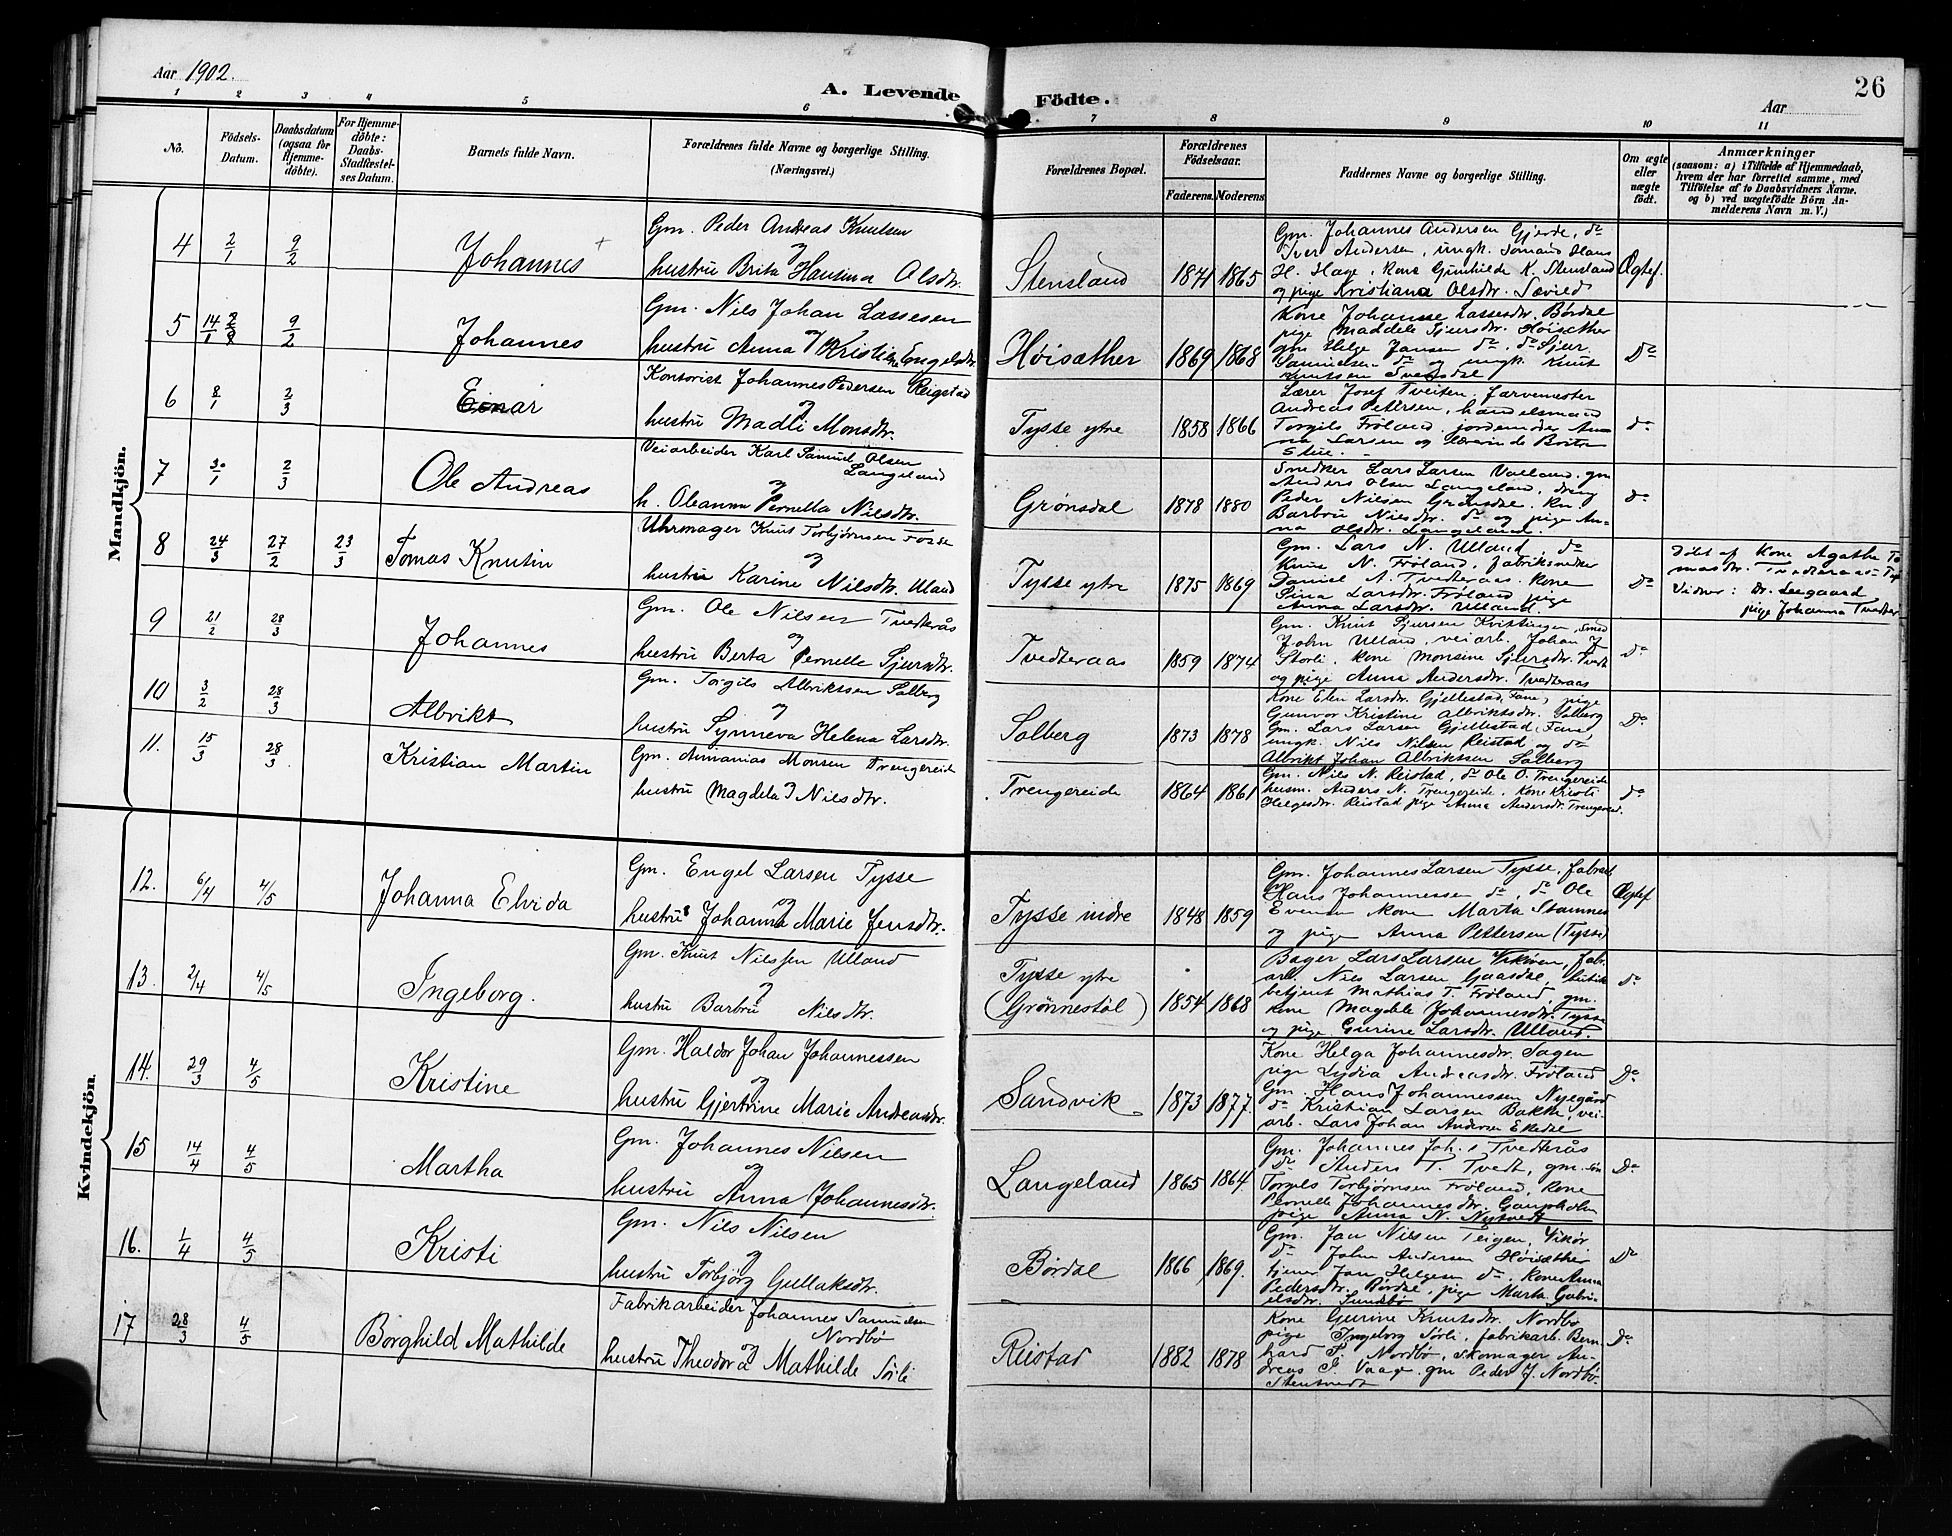 Aar 1902.
A. Levende Födte.
Aar
26
1 2 3 4 5 6 7 8 9 10 11
No.
Födsels-Datum.
Daabsdatum (ogsaa for Hjemmedöbte).
For Hjemmedöbte: Daabs-Stadfæstelses Datum.
Barnets fulde Navn.
Forældrenes fulde Navne og borgerlige Stilling. (Næringsvei.)
Forældrenes Bopæl.
Forældrenes Födselsaar.
Faderens. Moderens
Faddernes Navne og borgerlige Stilling.
Om ægte eller uægte födt.
Anmærkninger
(saasom: a) i Tilfælde af Hjemmedaab,
hvem der har forrettet samme, med
Tilföielse af to Daabsvidners Navne.
og b) ved uægtefödte Börn An-
melderens Navn m. V.)
Mandkjön.
4 2/1 9/2 Johannes
Gm. Peder Andreas Knutsen
og
hustru Brita Hansina Olsdtr.
Stensland 1871 1865
Gm. Johannes Andersen Gjerde, do
Iver Andersen, ungk. Tomas Hans
H. Hage, kone Gunhilde K. Stensland
og pige Kristiana Olsdtr. Sævild
Ægtef.
5 14/1 9/2 Johannes
Gm. Nils Johan Lassesen
og
hustru Anna Kristine Engelsdtr.
Höisæther 1869 1868
Kone Johanne Lassesdtr. Børdal
pige Maddela Sjursdtr. Höisæther
gm Helge Jansen do, do Sjur
Samuelsen do og ungk. Knut
Knutssen
Do
6 8/1 2/3 Einar
Kontorist Johannes Pedersen Reigstad
og
hustru Madli Monsdtr.
Tysse ytre 1858 1866
Lærer Josef Tveiten, farvemester
Andreas Petersen, handelsmand
Torgils Fröland, jordemoder An-
na Larsen og lærerinde Brita
do
7 30/1 2/3 Ole Andreas
Veiarbeider Karl Samuel Olsen
Langeland
og
h. Oleanna Pernella Nilsdtr.
Grønsdal 1878 1880
Snedker Lars Larsen Valland, gm
Anders Olsen Langeland, dreng
Peder Nilsen Grønsdal, kn.
Barbru Nilsdtr. do og pige An-
na Olsdtr. Langeland.
do
8 24/3 27/2 23/3 Tomas Knutin
Uhrmager Knut Torbjörnsen Fosse
og
hustru Karine Nilsdtr. Uland
Tysse ytre 1875 1869
Gm. Lars N. Ulland, do
Knut N. Fröland, fabriksnedker
Daniel A. Tvedteraas, kone
Sina Larsdtr. Fröland, pige
Anna Larsdtr. Ulland.
do
Döbt af Kone Agatha To-
masdtr. Tvedteraas
Vidner: Dr. Leegaard
pige Johanna Tvedter
9 21/2 28/3 Johannes
Gm. Ole Nilsen Tvedterås
og
hustru Berta Pernelle Sjursdtr.
Tvedteraas 1859 1874
Gm. Knut Sjursen Kvittingen, smed
John Ulland, veiarb. Johan J.
Storli, kone Monsine Sjursdtr. Tvedt
og pige Anna Andersdtr. Tvedteraas
do
10 3/2 28/3 Albrikt
Gm. Torgils Albriktsen Solberg
og
hustru Synneva Helena Larsdtr.
Solberg 1873 1878
Kone Elen Larsdtr. Gjellestad, Fane, pige
Gunvor Kristine Albriktsdtr. Solberg
Gm. Lars Larsen Gjellestad, Fane
ungk. Nils Nilsen Reistad og do
Albrikt Johan Albriktsen Solberg
Do
11. 15/3 28/3 Kristian Martin
Gm. Annanias Monsen Trengereide
hustru Magdela Nilsdtr.
Trengereide 1864 1861
Gm. Nils N. Reistad, do Ole O. Trengereide
husm. Anders N. Trengereide, Kone Kristi
Helgesdtr. Reistad pige Anna Andersdtr. Trengereid.
do
Kvindekjön.
12. 6/4 4/5 Johanna Elvida
Gm. Engel Larsen Tysse
og
hustru Johanna Marie Jensdtr.
Tysse indre 1848 1859
Gm. Johannes Larsen Tysse, fabrik
Hans Johannessen do, do Ole
Evensen kone Marta Stamnes
og pige Anna Pettersen (Tysse)
Ægtef
13. 2/4 4/5 Ingeborg.
Gm. Knut Nilssen Ulland
og
hustru Barbru Nilsdtr.
Tysse ytre
(Grønnestöl) 1854 1868
Bager Lars Larsen Vikøren, fab.
arb. Nils Larsen Gaasdal,
betjent Mathias T. Fröland, gm.
kone Magdele Johannesdtr. Tysse
og pige Gurine Larsdtr. Ulland.
do
14. 29/3 4/5 Kristine
Gm. Haldor Johan Johannessen
og
hustru Gjertrine Marie Andreasdtr.
Sandvik 1873 1877.
Kone Helga Johannesdtr. Sagen
pige Lydia Andreasdtr. Fröland
Gm. Hans Johannessen Nygård
do Kristian Larsen Bakke, vei-
arb. Lars Johan Andersen Ekedal
Do
15 14/4 4/5 Martha
Gm. Johannes Nilsen
og
hustru Anna Johannesdtr.
Langeland 1865 1864.
Gm. Johannes Joh.s Tvedterås
do Anders T. Tvedt, gm. sön
Torgils Torbjörnsen Fröland, kone
Pernille Johannesdtr. Gaupholm
pige Anna N. Nytvedt
Do
16. 1/4 4/5 Kristi
Gm. Nils Nilsen
og
hustru Torbjörg Gullaksdtr.
Børdal 1866 1869.
Gm. Jan Nilsen Teigen, Vikør
do John Andersen Höisæther
tjener Jan Helgesen do, kone Anna
Pedersdtr. Børdal, pige Marta Gabri-
elsdtr. Sundsbø
Do
17 28/3 4/5 Borghild Mathilde
Fabrikarbeider Johannes Samuelsen
Nordbø
og
hustru Theodora Mathilde Sörli
Reistad 1882 1878
Kone Gurine Knutsdtr. Nordbø
pige Ingeborg Sörli, fabrikarb. Bern-
hard S. Nordbø, skomager An-
dreas I. Vaage, gm Peder J. Nordbø
Stensvedt
Do